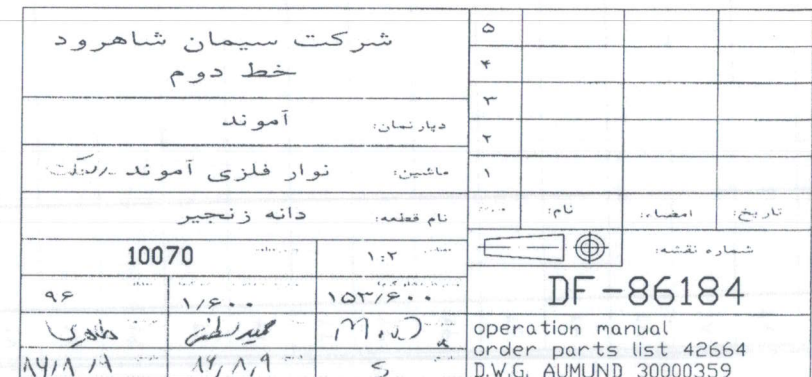 شرکت سیمان شاهرود
خط دوم
دپارتمان: آموند
ماشین: نوار فلزی آموند
نام قطعه: دانه زنجیر
10070
۱:۲
۹۶
۱/۶۰۰
۱۵۳/۶۰۰
۸۶/۸/۹
۸۶/۸/۹
۵
۴
۳
۲
۱
نام:
امضاء:
تاریخ:
شماره نقشه:
DF-86184
operation manual
order parts list 42664
D.W.G. AUMUND 30000359